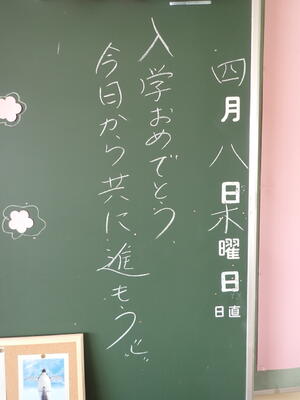 四月八日木曜日
日直
入学おめでとう
今日から共に進もう